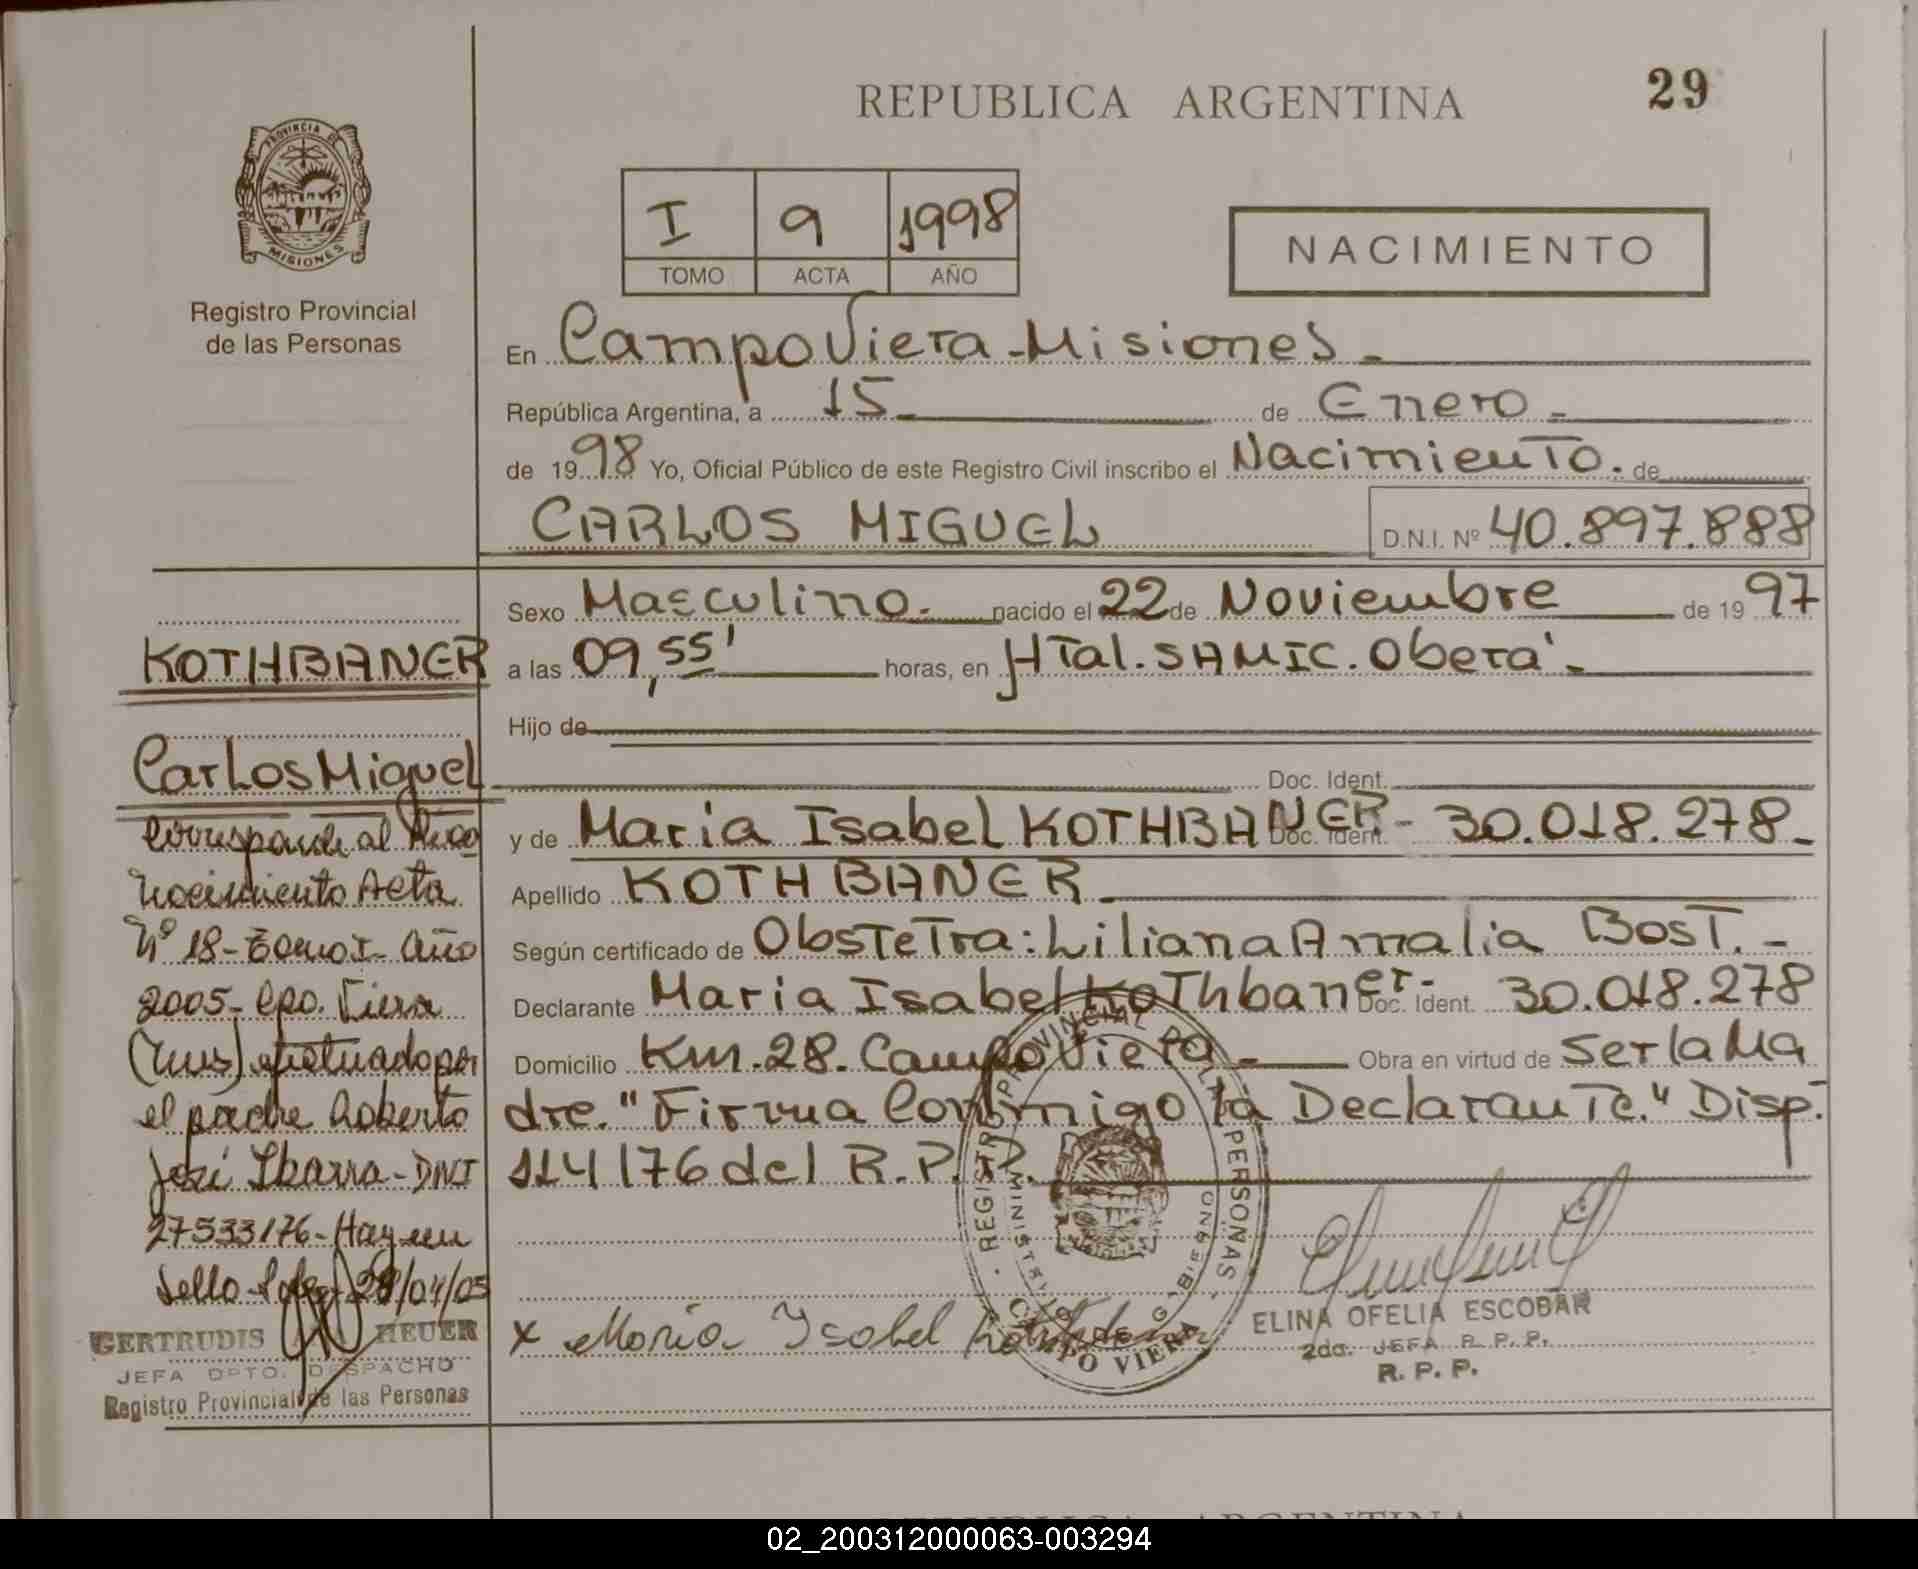 REPUBLICA ARGENTINA
29
PROVINCIA DE
MISIONES
Registro Provincial
de las Personas
I 9 1998
TOMO ACTA AÑO
NACIMIENTO
En Campo Viera - Misiones -
República Argentina, a 15 - de Enero -
de 1998 Yo, Oficial Público de este Registro Civil inscribo el Nacimiento. de
CARLOS MIGUEL D.N.I. Nº 40.897.888
Sexo Masculino. nacido el 22 de Noviembre de 1997
a las 09,55' horas, en Htal. SAMIC. Oberá -
Hijo de
Doc. Ident.
y de Maria Isabel KOTHBANER Doc. Ident. - 30.018.278 -
Apellido KOTHBANER
Según certificado de Obstetra: Liliana Amalia Bost. -
Declarante Maria Isabel Kothbaner - Doc. Ident. 30.018.278
Domicilio Km. 28. Campo Viera - Obra en virtud de Ser la Ma
dre. "Firma Conmigo la Declarante." Disp.
114/76 del R.P.P.
KOTHBANER
Carlos Miguel
Corresponde al Reco
nocimiento Acta
Nº 18 - Tomo I - Año
2005 - Cpo. Viera
(Mns) efectuado por
el padre Roberto
José Ibarra - DNI
27533176 - Hay un
Sello 28/04/05
GERTRUDIS HEUER
JEFA DPTO. DESPACHO
Registro Provincial de las Personas
x Maria Isabel Kothbaner
REGISTRO PROVINCIAL DE LAS PERSONAS
MINISTERIO DE GOBIERNO
CAMPO VIERA
ELINA OFELIA ESCOBAR
2da. JEFA R. P. P.
R. P. P.
REPUBLICA ARGENTINA
02_200312000063-003294